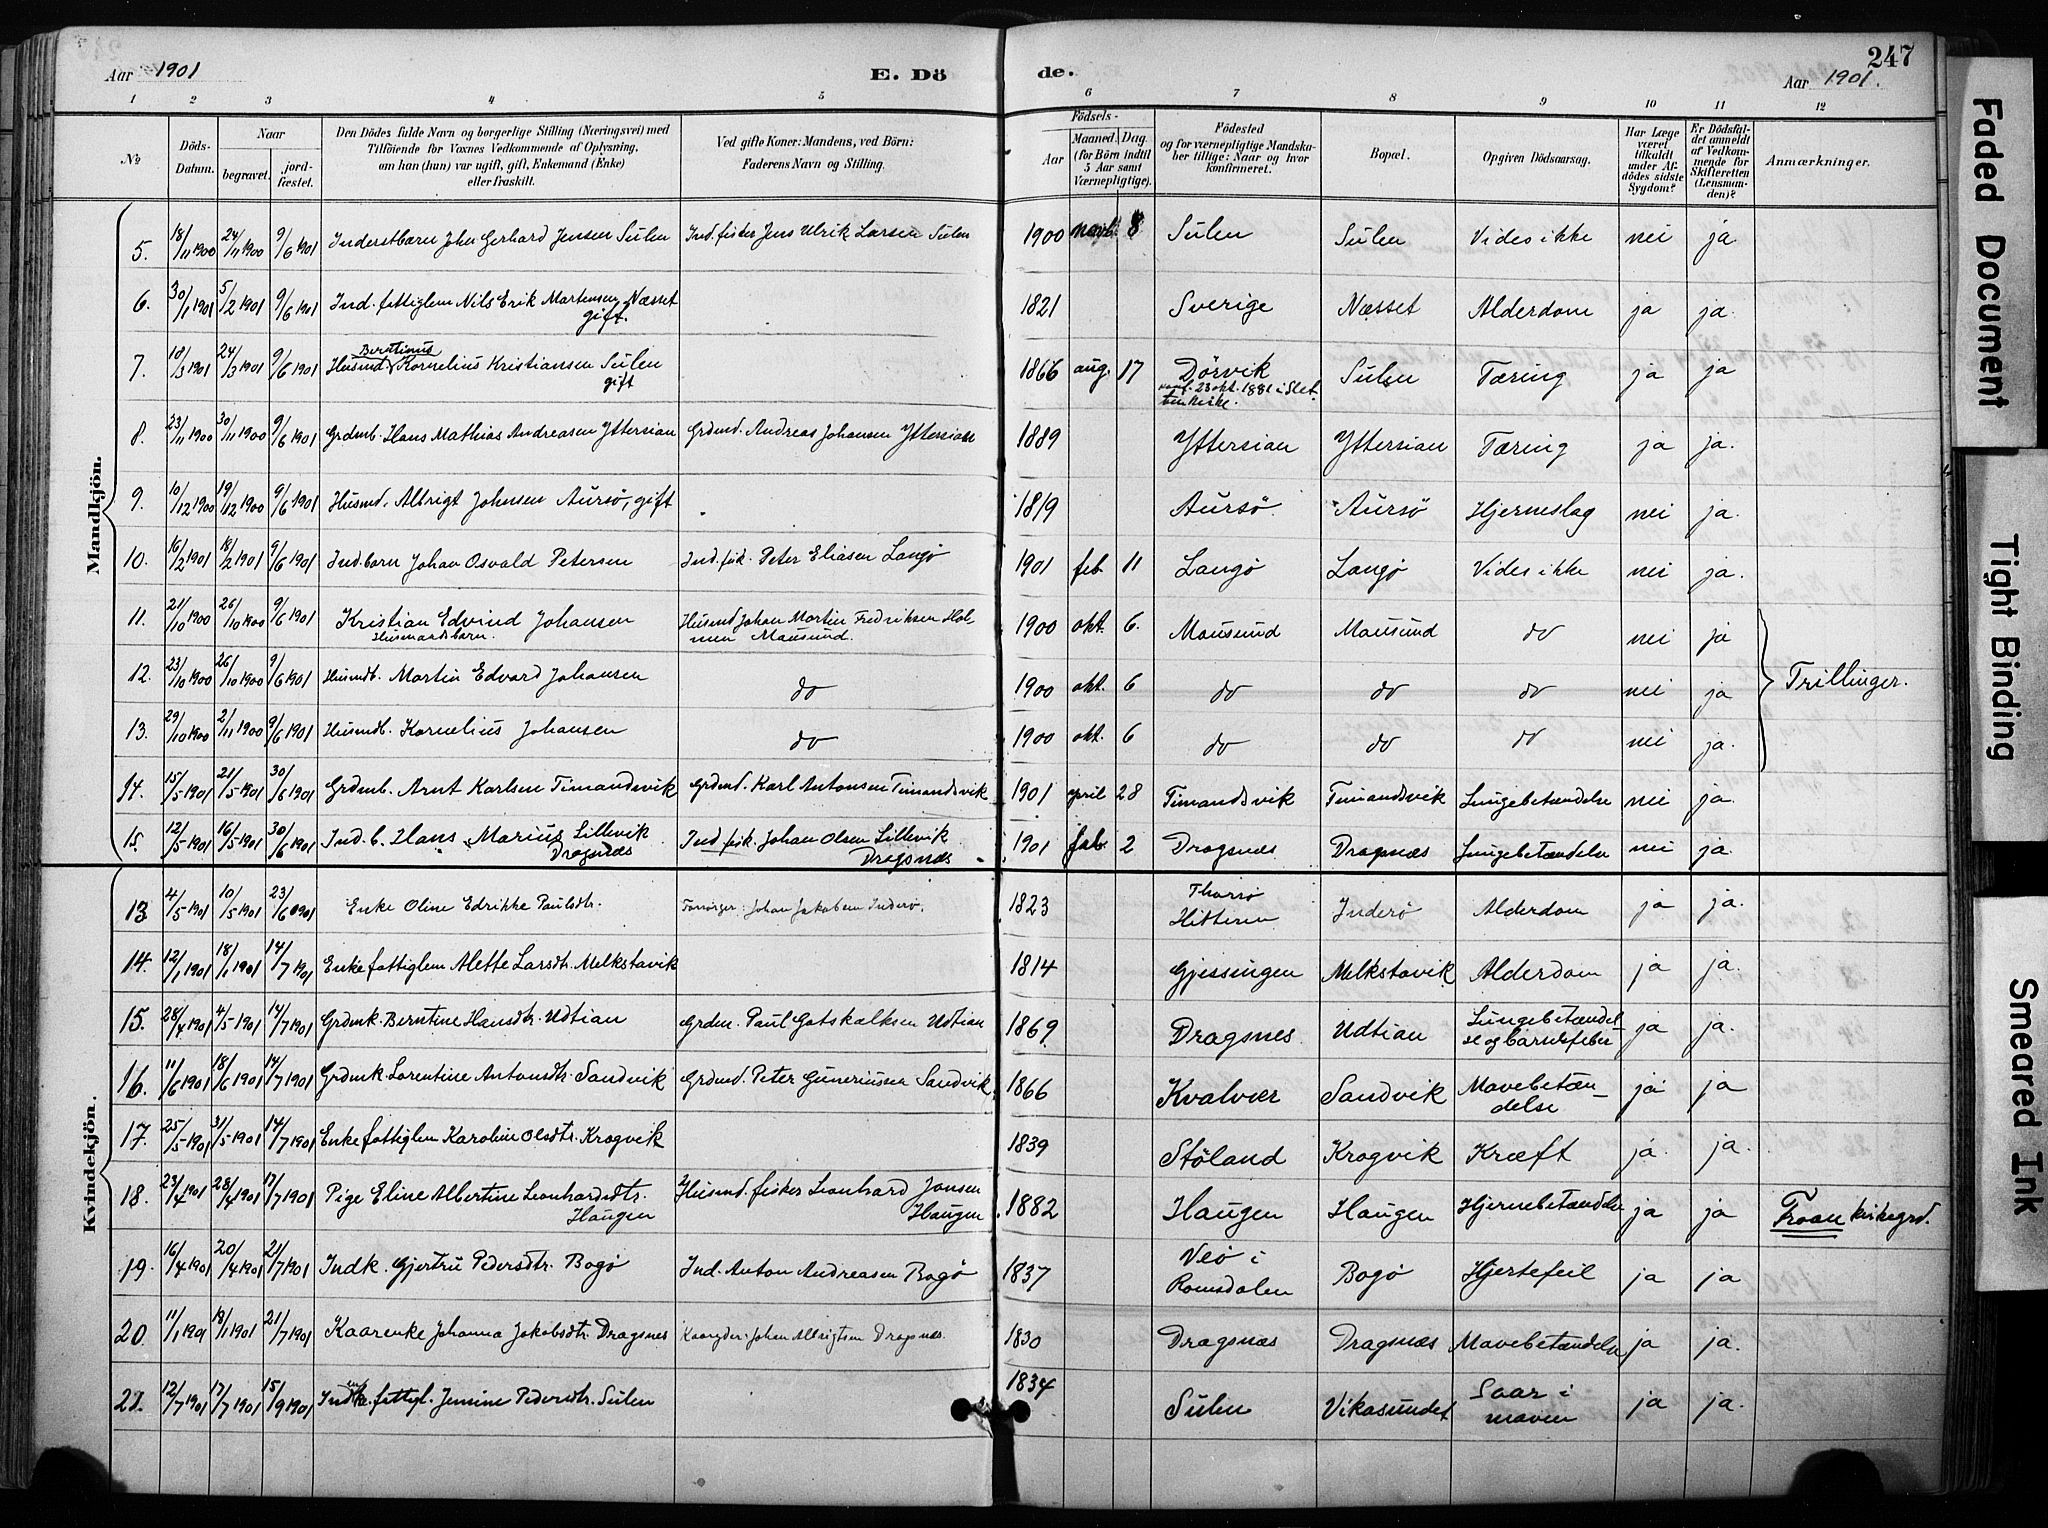 247
Aar 1901
E. Dö
de.
Aar 1901.
1 2 3 4 5 6 7 8 9 10 11 12
№
Döds-Datum.
Naar
begravet.
jord-fæstet.
Den Dödes fulde Navn og borgerlige Stilling (Næringsvei) med
Tilföiende for Voxnes Vedkommende af Oplysning,
om han (hun) var ugift, gift, Enkemand (Enke)
eller fraskilt.
Ved gifte Koner: Mandens, ved Börn:
Faderens Navn og Stilling.
Födsels-
Aar
Maaned. Dag.
(for Börn indtil
5 Aar samt
Værnepligtige).
Födested
og for værnepligtige Mandska-
ber tillige: Naar og hvor
konfirmeret.
Bopæl.
Opgiven Dödsaarsag.
Har Læge
været
tilkaldt
under Af-
dödes sidste
Sygdom?
Er Dödsfal-
det anmeldt
af Vedkom-
mende for
Skifteretten
(Lensman-
den)?
Anmærkninger.
Mandkjön.
5. 18/11 1900 24/11 1900 9/6 1901 Inderstbarn John Gerhard Jensen Sulen Ind. fisker Jens Ulrik Larsen Sulen 1900 8 Sulen Sulen Vides ikke nei ja.
6. 30/1 1901 5/2 1901 9/6 1901 Ind. fattiglem Nils Erik Martensen Næsset 1821 Sverige Næsset Alderdom ja ja.
gift.
Berntinus
7. 18/3 1901 24/3 1901 9/6 1901 Husmd. Kornelius Kristiansen Sulen 1866 aug. 17 Dörvik Sulen Tæring ja ja
gift
konf. 23 okt. 1881 i Slet-
ten kirke.
8. 23/11 1900 30/11 1900 9/6 1901 Grdmb. Hans Mathias Andreasen Yttersian Grdmd. Andreas Johansen Yttersian 1889 Yttersian Yttersian Tæring ja ja.
9. 10/12 1900 19/12 1900 9/6 1901 Husmd. Albrigt Johnsen Aursø, gift 1819 Aursø Aursø Hjerneslag nei ja.
10. 16/2 1901 18/2 1901 9/6 1901 Ind. barn Johan Osvald Petersen Ind. fisk. Peter Eliasen Langø 1901 feb. 11 Langø Langø Vides ikke nei ja.
11. 21/10 1900 26/10 1900 9/6 1901 Kristian Edvind Johansen Husmd Johan Martin Fredriksen Hol- 1900 okt. 6. Mausund Mausund do nei ja
Husmandsbarn. men Mausund.
12. 23/10 1900 26/10 1900 9/6 1901 Husmdb. Martin Edvard Johansen do 1900 okt. 6 do do do nei ja Trillinger.
13. 29/10 1900 2/11 1900 9/6 1901 Husmdb. Kornelius Johansen do 1900 okt. 6 do do do nei ja.
14. 15/5 1901 21/5 1901 30/6 1901 Grdmb. Arnt Karlsen Timandsvik Grdmd. Karl Antonsen Timandsvik 1901 april 28 Timandsvik Timandsvik Lungebetændelse nei ja.
15. 12/5 1901 16/5 1901 30/6 1901 Ind. b. Hans Marius Lillevik Ind. fisk. Johan Olsen Lillevik 1901 feb. 2 Dragsnæs Dragsnæs Lungebetændelse nei ja.
Dragsnæs Dragsnæs
Kvindekjön.
13 4/5 1901 10/5 1901 23/6 1901 Enke Oline Edrikke Paulsdtr. Forsörger: Johan Jakobsen Inderö. 1823 Thorsø Hitteren Inderö Alderdom ja ja.
14. 12/1 1901 18/1 1901 14/7 1901 Enke fattiglem Alette Larsdtr. Melkstavik 1814 Gjessingen Melkstavik Alderdom ja ja.
15. 28/4 1901 4/5 1901 14/7 1901 Grdmk. Berntine Hansdtr. Udtian Grdm. Paul Gotskalksen Udtian 1869 Dragsnes Udtian Lungebetændel- ja ja.
se og barselfeber
16. 11/6 1901 18/6 1901 14/7 1901 Grdmk Lorentine Antonsdtr. Sandvik Grdmd. Peter Guneriussen Sandvik 1866 Kvalvær Sandvik Mavebetæn- ja ja
delse
17. 25/5 1901 31/5 1901 14/7 1901 Enke fattiglem Karoline Olsdtr. Krogvik 1839 Stöland Krogvik Kræft ja. ja.
18. 23/4 1901 28/4 1901 17/7 1901 Pige Eline Albertine Leonhardsdtr. Husmd. fisker Leonhard Jonsen 1882 Haugen Haugen Hjernebetændelse ja ja Froan kirkegrd.
Haugen Haugen
19. 16/4 1901 20/4 1901 21/7 1901 Indk. Gjertru Pedersdtr. Bogø Ind. Anton Andreasen Bogø 1837 Veö i Romsdalen Bogø Hjertefeil ja ja
20. 11/1 1901 18/1 1901 21/7 1901 Kaarenke Johanna Jakobsdtr. Dragsnes Kaaryder: Johan Albrigtsen Dragsnæs. 1830 Dragsnæs Dragsnæs Mavebetændelse ja ja.
21. 12/7 1901 17/7 1901 15/9 1901 fattigl. Jensine Pedersdtr. Sulen 1834 Sulen Vikasundet Saar i maven ja ja.
Faded Document
Tight Binding
Smeared Ink